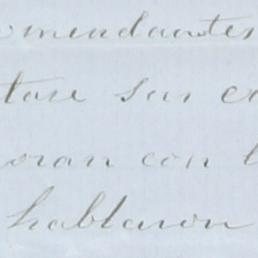 mendantes
tase sus c
oran con l
hablaron